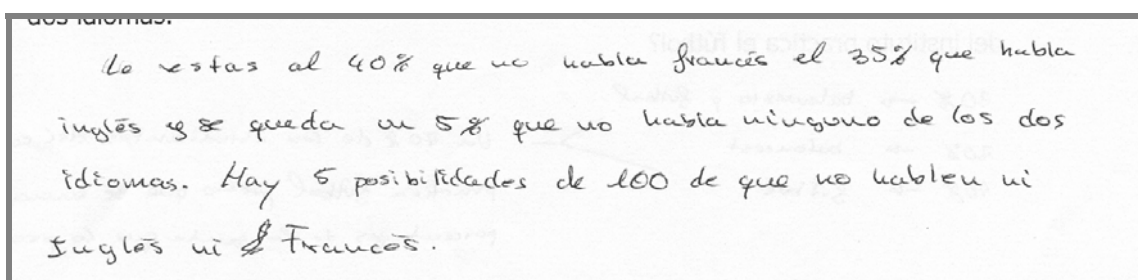 dos idiomas.
Le restas al 40% que no habla francés el 35% que habla
inglés y se queda un 5% que no habla ninguno de los dos
idiomas. Hay 5 posibilidades de 100 de que no hablen ni
Inglés ni Francés.